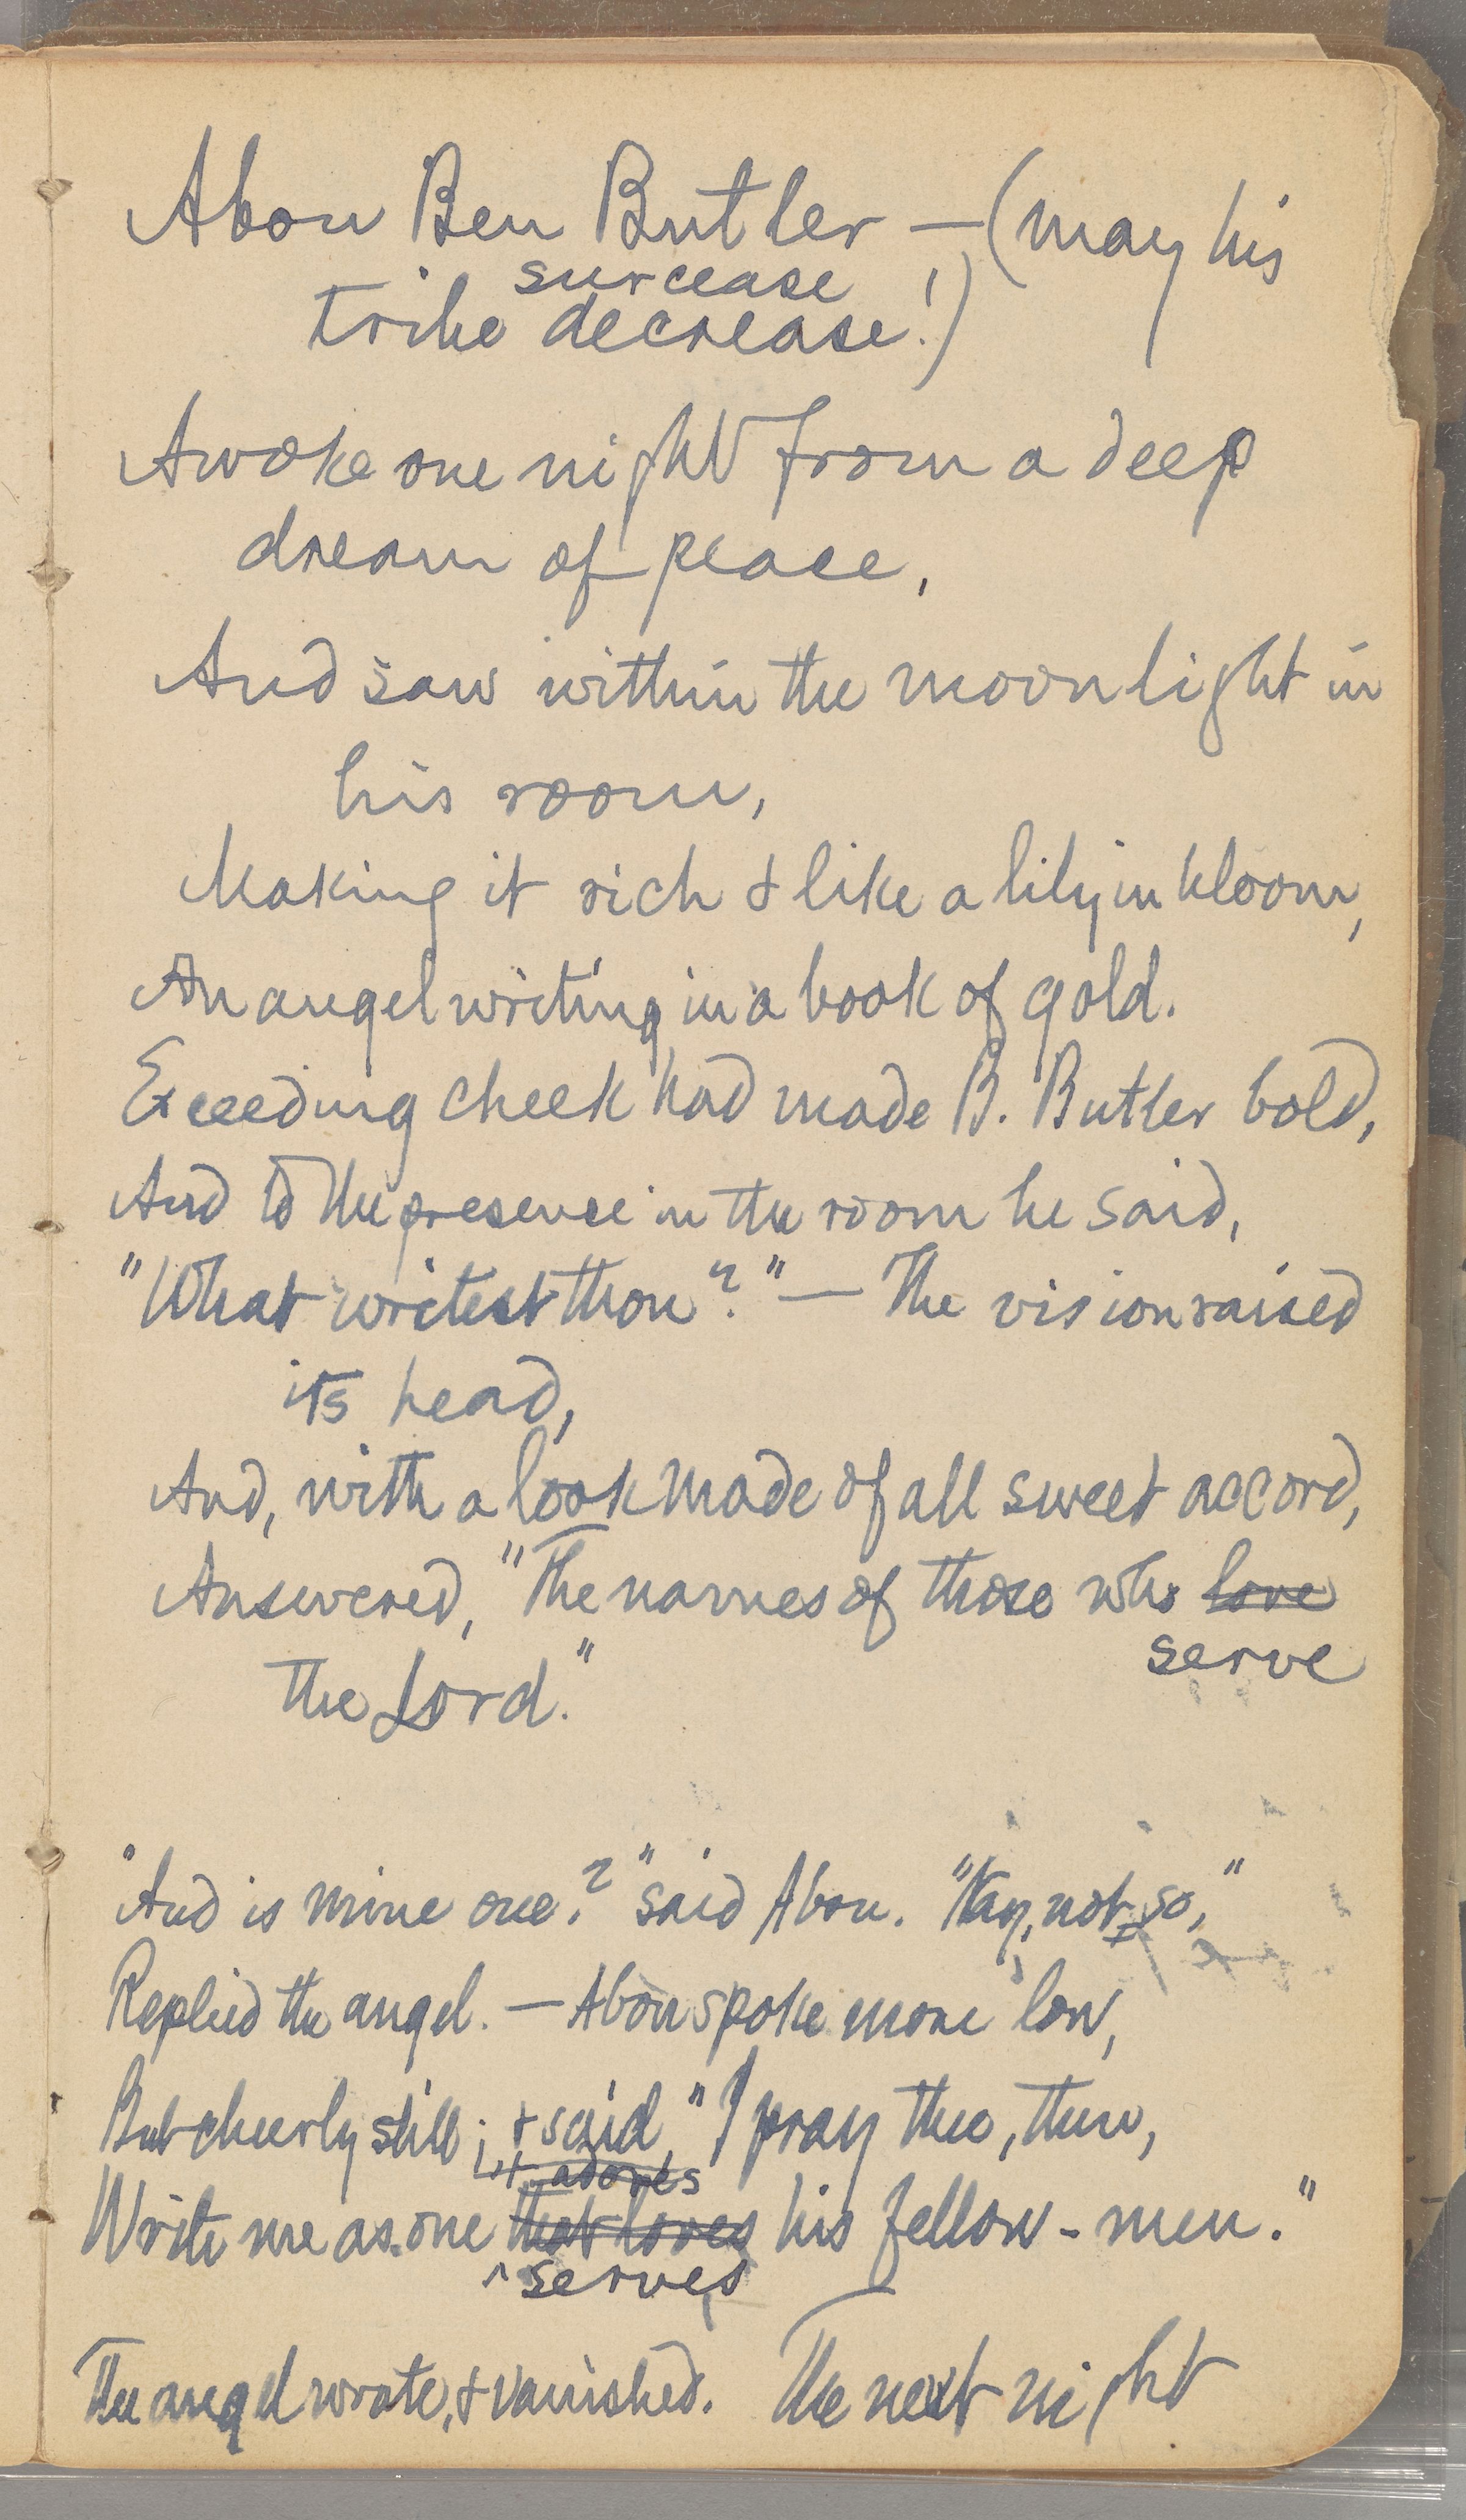 Abou Ben Butler — (may his
surcease !
tribe decrease!)
Awoke one night from a deep
dream of peace,
And saw within the moonlight in
his room,
Making it rich & like a lily in bloom,
An angel writing in a book of gold.
Exceeding cheek had made B. Butler bold,
And to the presence in the room he said,
"What writest thou?" — The vision raised
its head,
And, with a look made of all sweet accord,
Answered, "The names of those who love
serve
the Lord."
"And is mine one?" said Abou. "Nay, not so,"
Replied the angel. — Abou spoke more low,
But cheerly still; & said, "I pray thee, then,
adores
Write me as one that loves his fellow-men."
^ serves
The angel wrote, & vanished. The next night